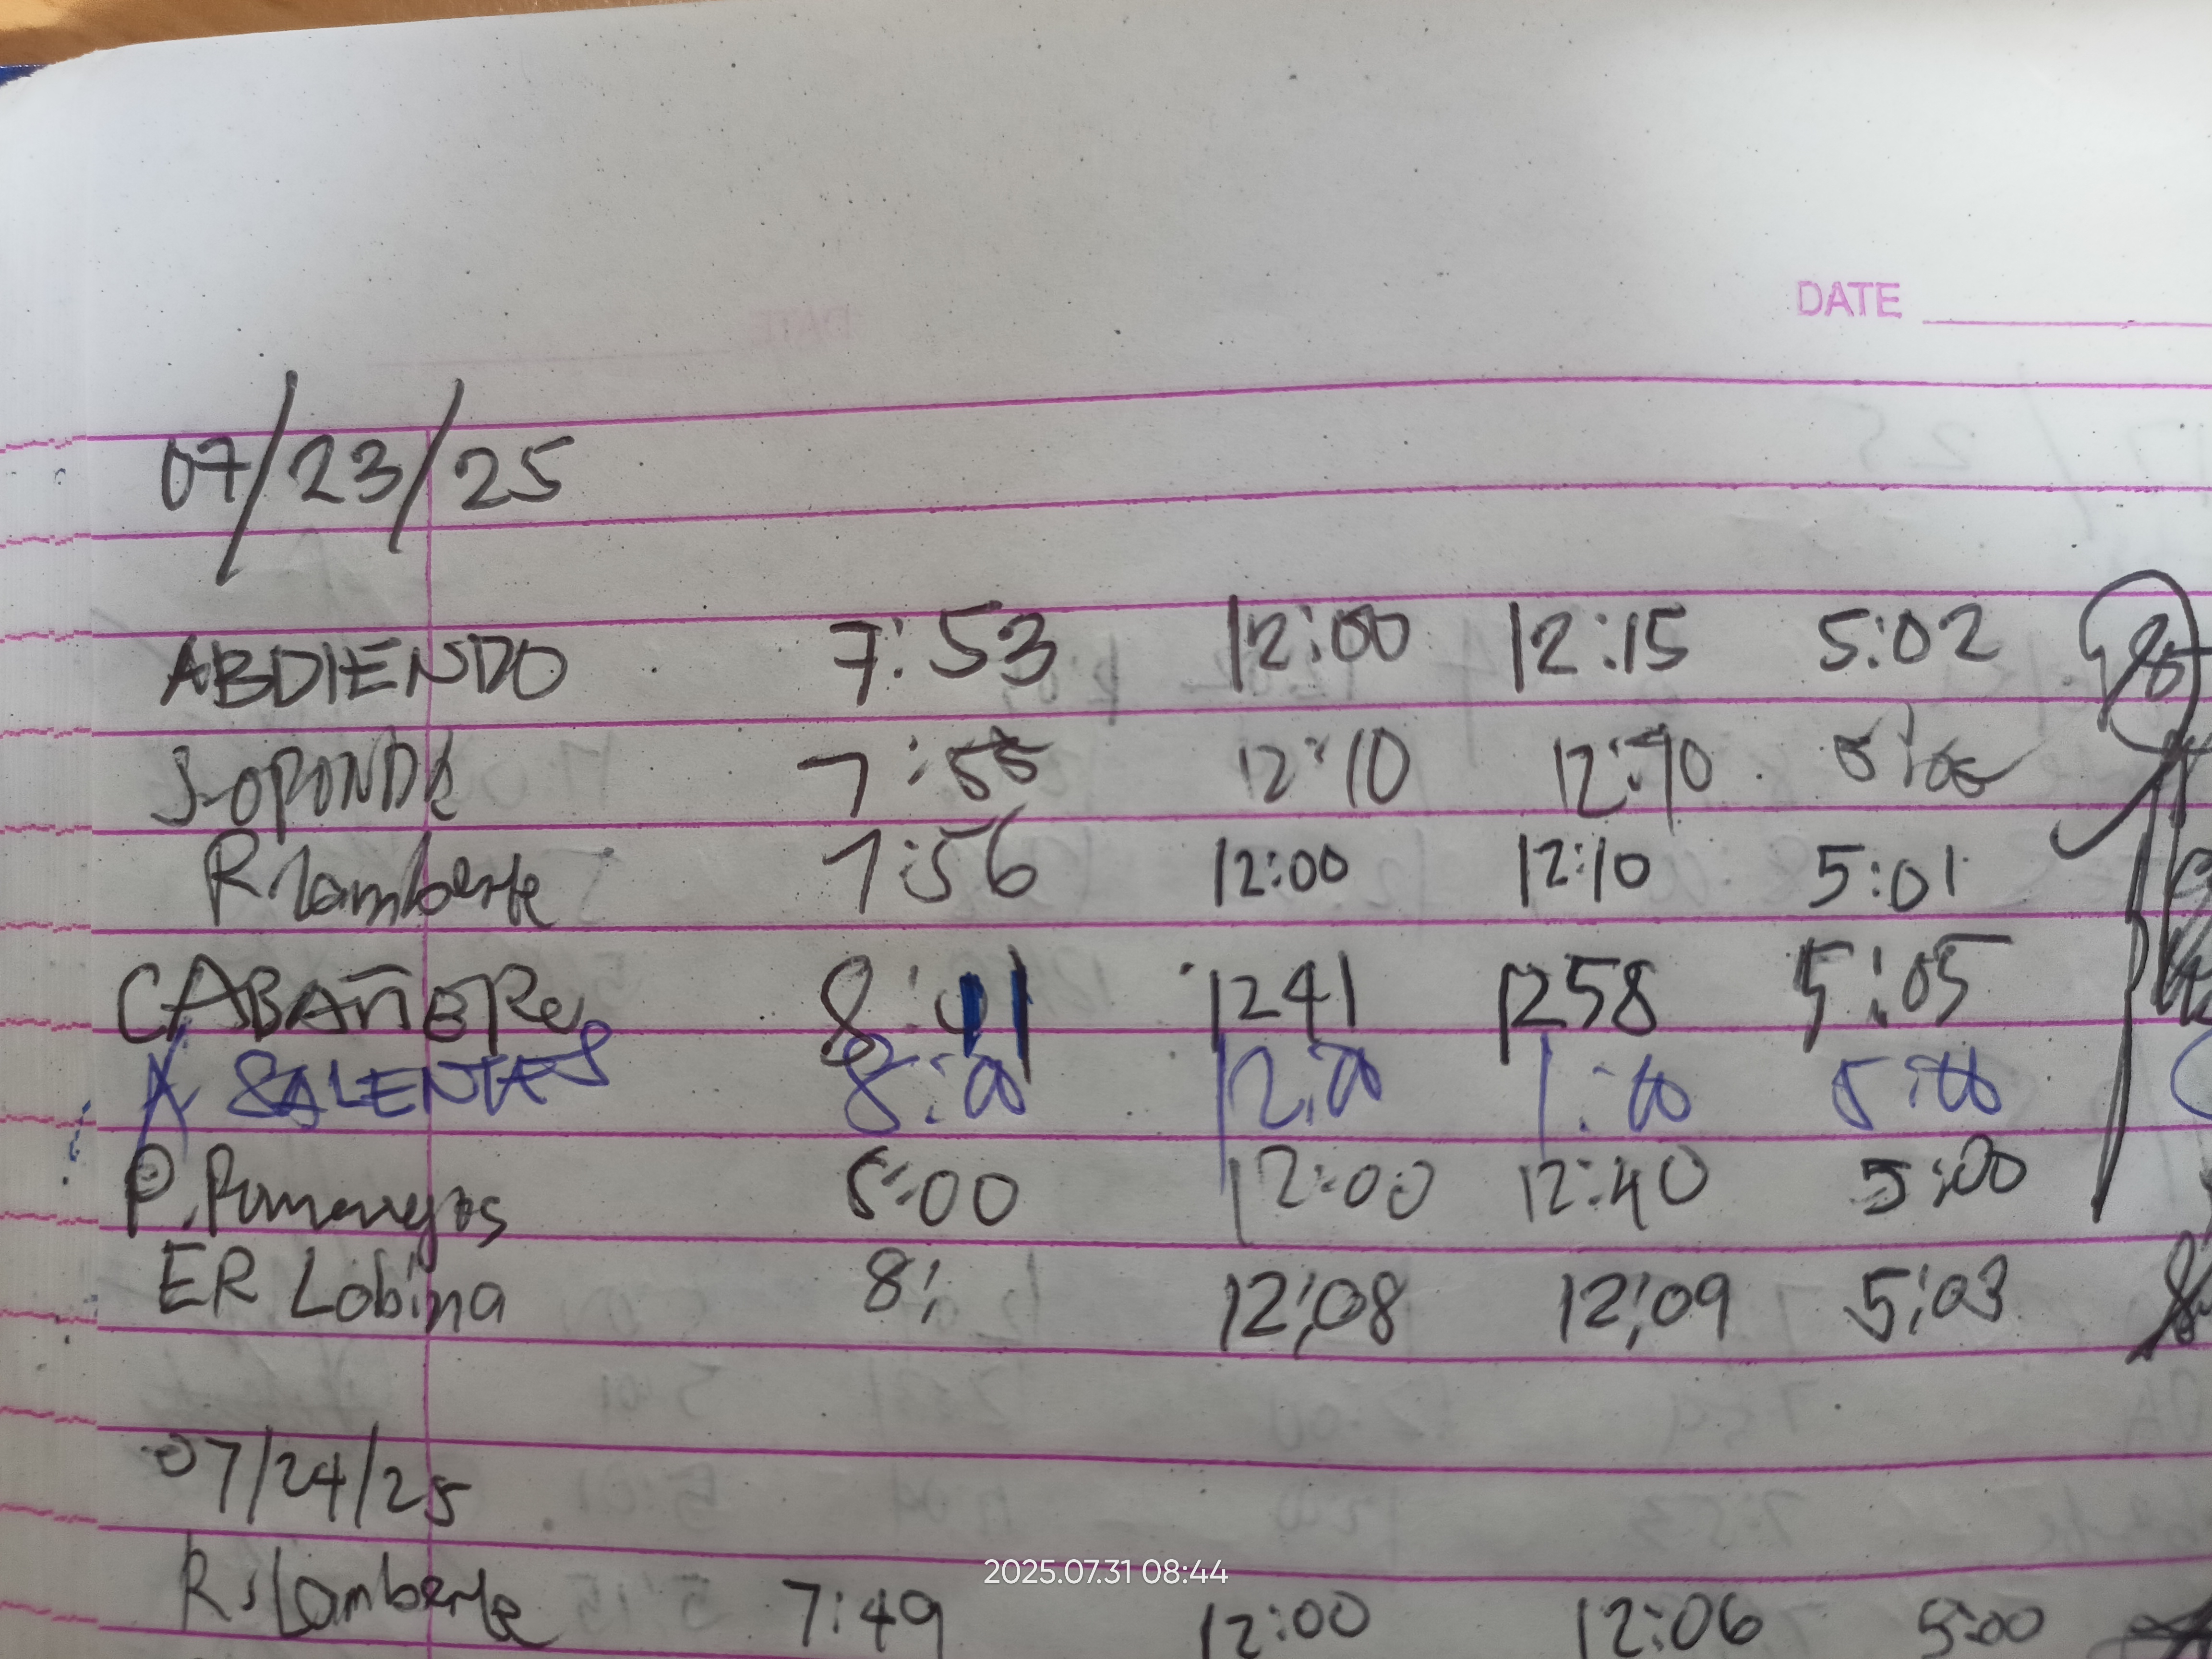 DATE
07/23/25
ABDIENDO 7:53 12:00 12:15 5:02
7:55 12:10 12:10
R. Lamberte 7:56 12:00 12:10 5:01
CABAÑERO 8:41 1241 1258 5:05
A SALENTES 8:00 12:00 1:00 5:00
P. 8:00 12:00 12:40 5:00
ER Lobina 8: 12:08 12:09 5:03
07/24/25
2025.07.31 08:44
R. Lamberte 7:49 12:00 12:06 5:00